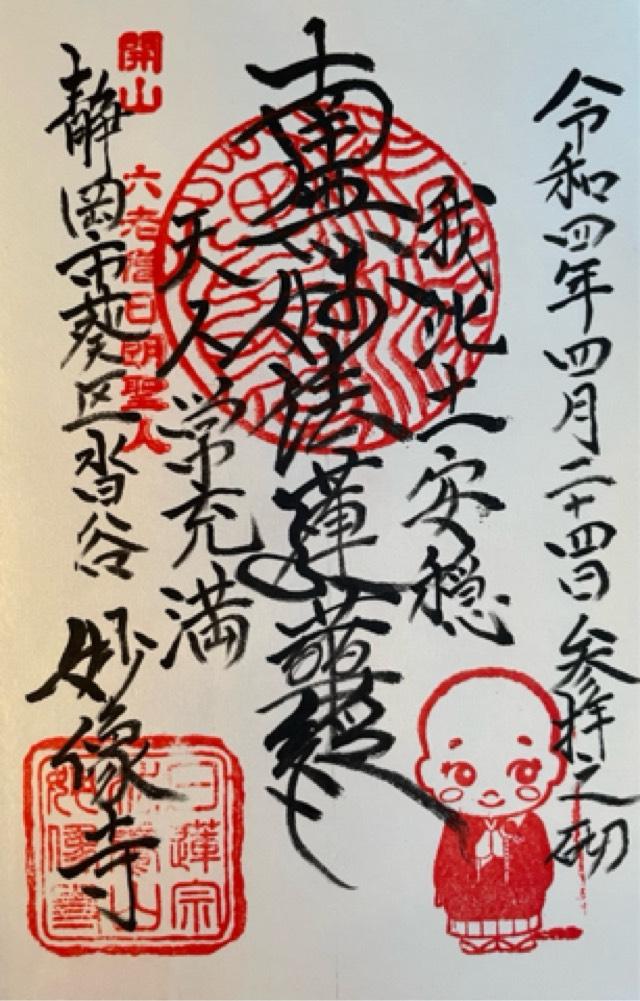 令和四年四月二十四日 参拝之砌
我此土安穏
南無妙法蓮華経
天人常充満
開山 六老僧日朗聖人
静岡市葵区沓谷 妙像寺
日蓮宗
妙像寺